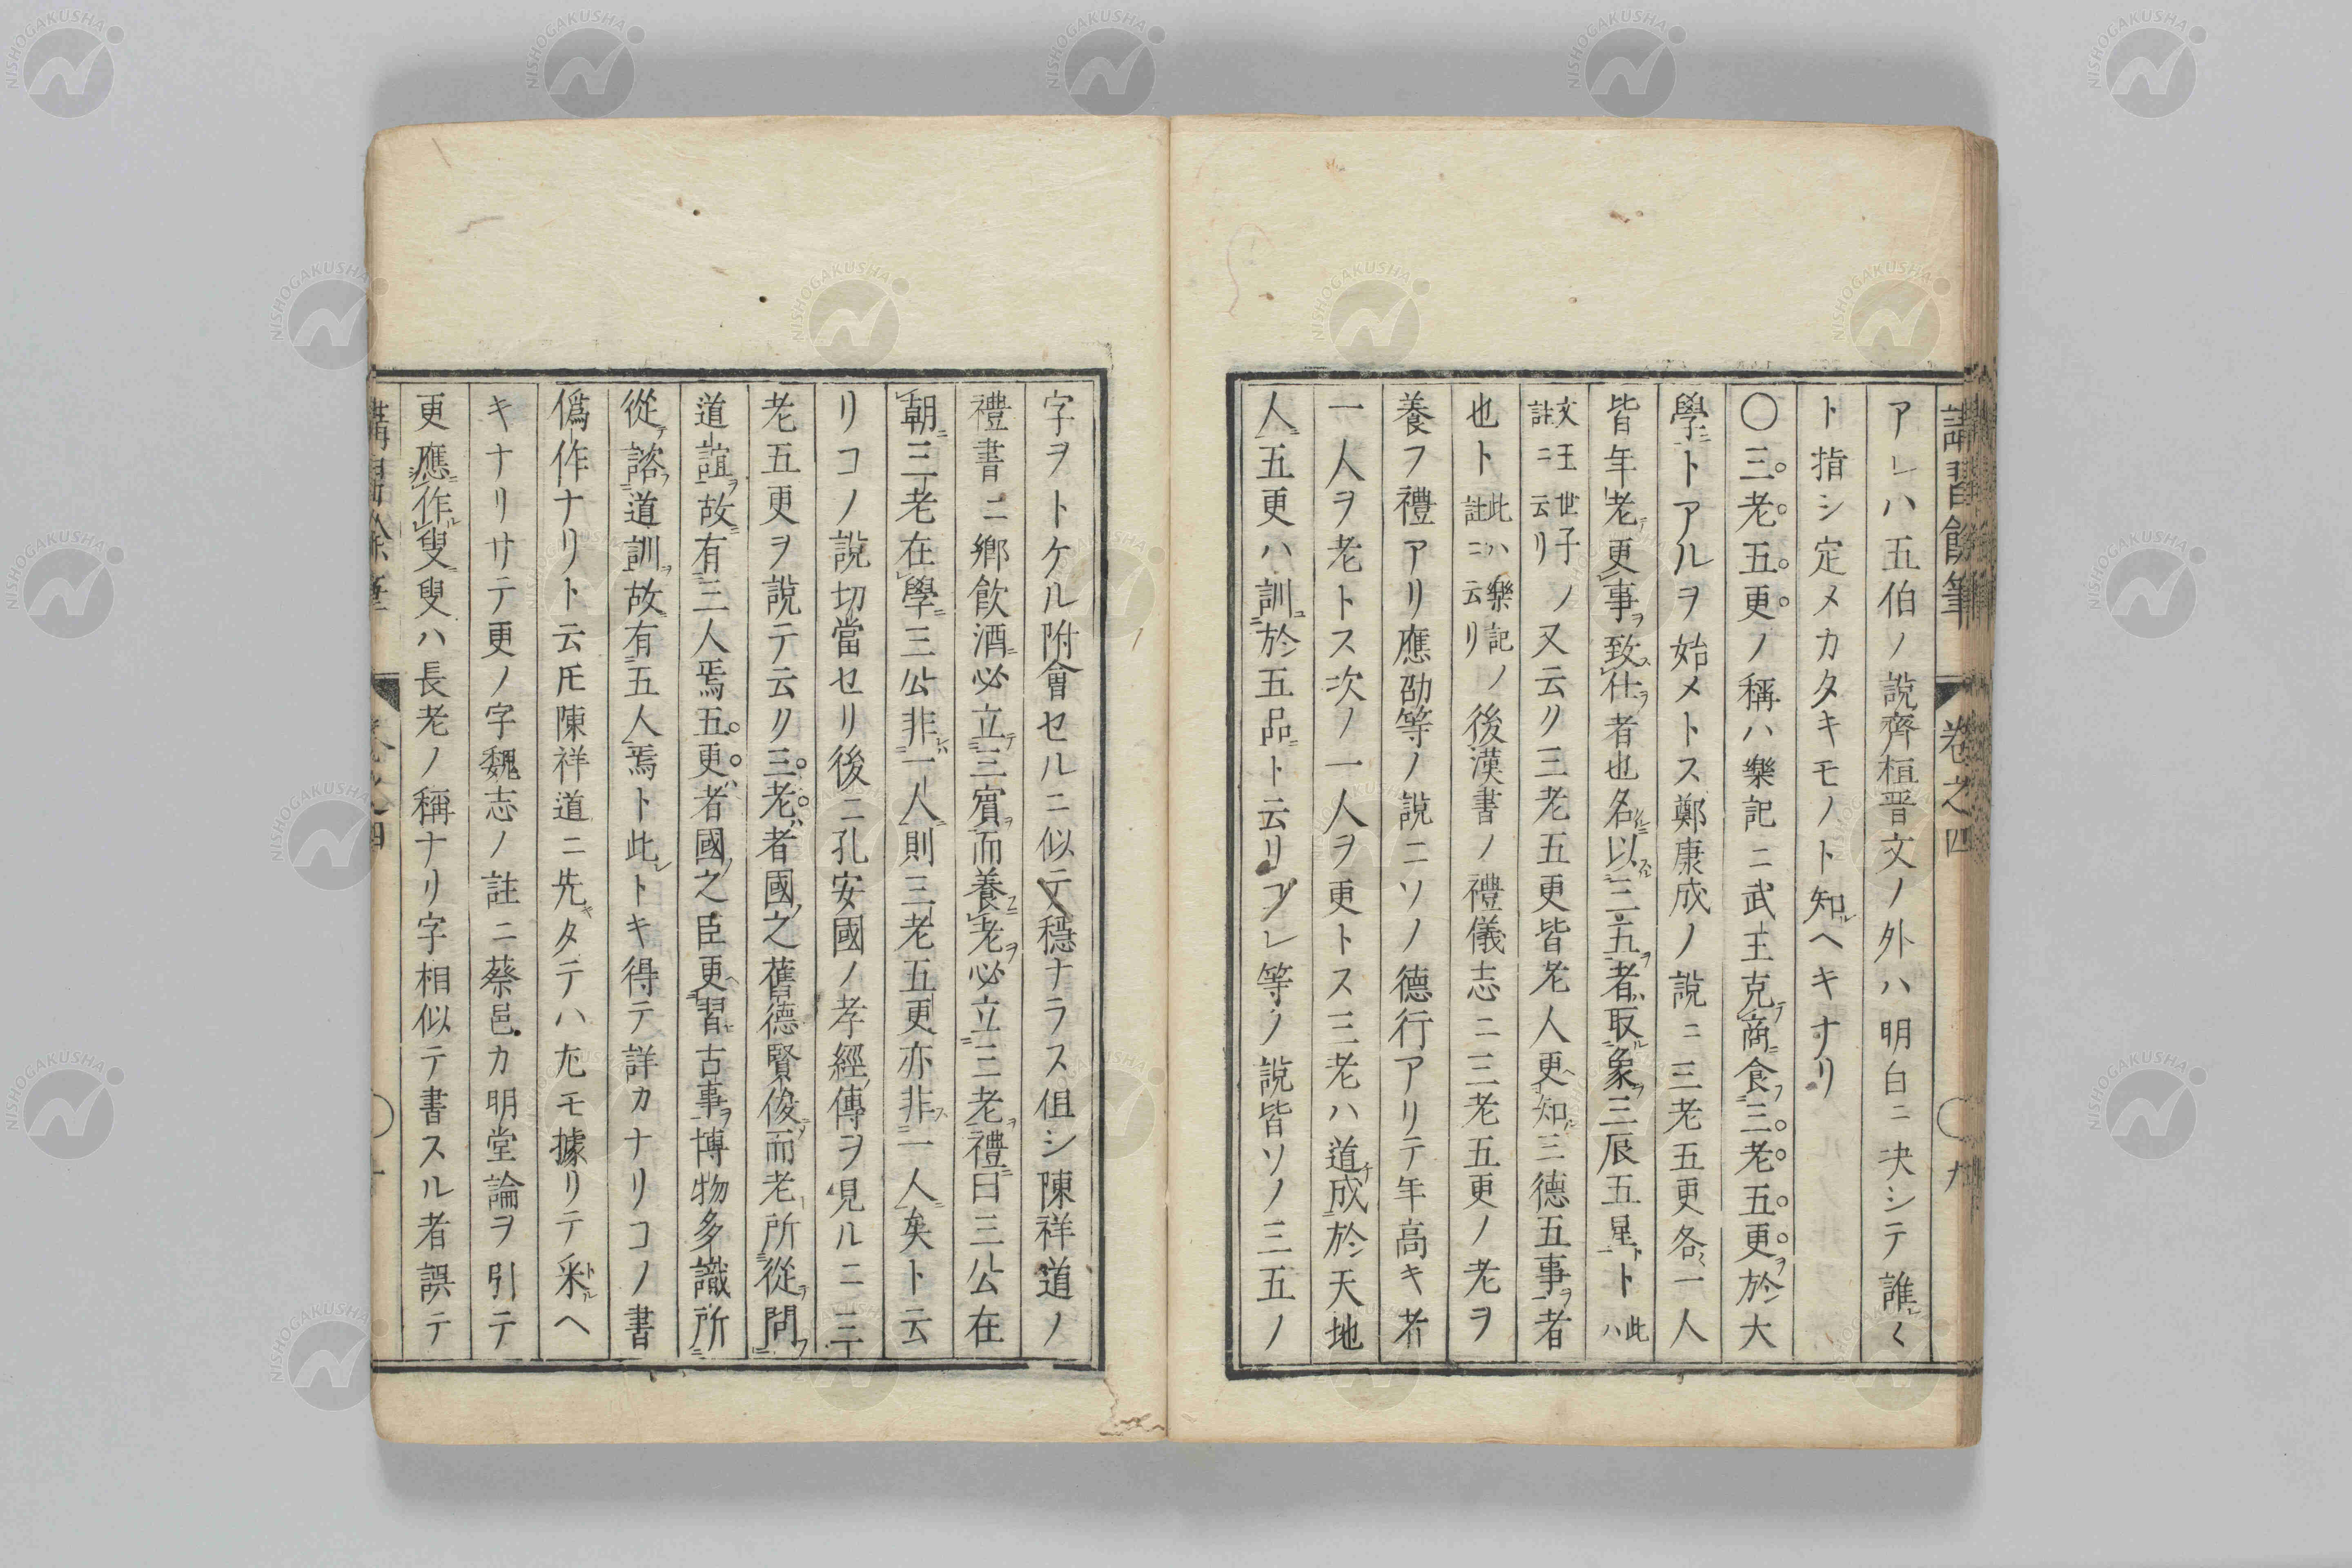 講習餘筆 卷之四 九
アレハ五伯ノ説齊桓晋文ノ外ハ明白ニ决シテ誰レ〱
ト指シ定メカタキモノト知ルヘキナリ
〇三老五更ノ稱ハ樂記ニ武王克テ商ニ食フ三老五更ヲ於大
學ニトアルヲ始メトス鄭康成ノ説ニ三老五更各〻一人
皆年老テ更事ヲ致ス仕ヲ者也名以三五ヲ者ハ取ル象ヲ三辰五星ト此ハ
文王世子ノ註ニ云リ又云ク三老五更皆老人更ヘ知三德五事ヲ者
也ト此ハ樂記ノ註ニ云リ後漢書ノ禮儀志ニ三老五更ノ老ヲ
養フ禮アリ應劭等ノ説ニソノ德行アリテ年高キ者
一人ヲ老トス次ノ一人ヲ更トス三老ハ道成於天地
人ニ五更ハ訓於五品ニト云リコレ等ノ説皆ソノ三五ノ
字ヲトケル附會セルニ似テ穩ナラス但シ陳祥道ノ
禮書ニ鄉飲酒ニ必立テ三賓ヲ而養老ヲ必立三老ヲ禮ニ曰三公在
朝ニ三老在學ニ三公非一人ニ則三老五更亦非一人ニ矣ト云
リコノ説切當セリ後ニ孔安國ノ孝經ノ傳ヲ見ルニ三
老五更ヲ説テ云ク三老ハ者國ノ之舊德賢俊而老所從問フ
道誼ヲ故ニ有三人焉五更ハ者國ノ之臣更ヘ習古事ヲ博物多識所
從テ諮フ道訓ヲ故ニ有五人焉ト此レトキ得テ詳カナリコノ書
僞作ナリト云𪜈陳祥道ニ先キタテハ尤モ據リテ釆ルヘ
キナリサテ更ノ字魏志ノ註ニ蔡邕カ明堂論ヲ引テ
更應ニ作ル叟ニ叟ハ長老ノ稱ナリ字相似テ書スル者誤テ